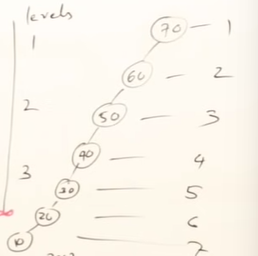 levels
70 — 1
1
60 — 2
2
50 — 3
40 — 4
3
30 — 5
20 — 6
10 — 7